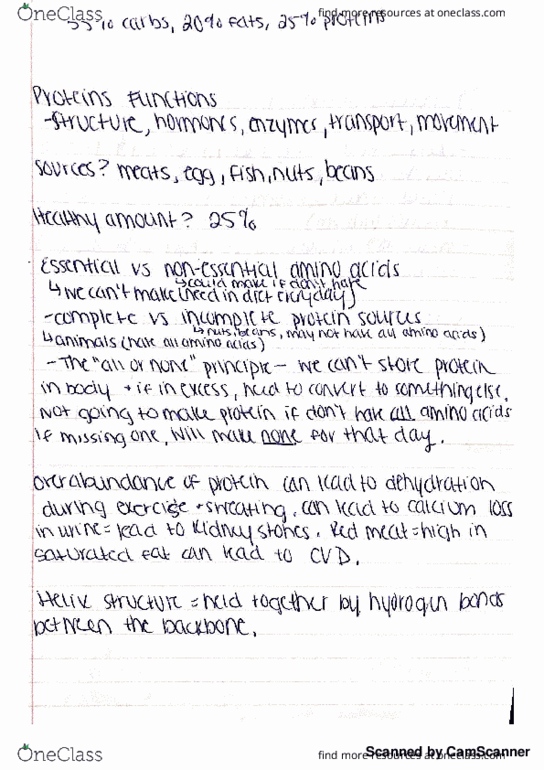 OneClass
find more resources at oneclass.com
55% carbs, 20% fats, 25% proteins
Proteins Functions
-structure, hormones, enzymes, transport, movement
sources? meats, egg, fish, nuts, beans
Healthy amount? 25%
Essential vs non-essential amino acids
↳ could make if don't have
↳ we can't make (need in diet everyday)
-complete vs incomplete protein sources
↳ nuts, beans, may not have all amino acids)
↳ animals (have all amino acids)
- The "all or none" principle - we can't store protein
in body + if in excess, need to convert to something else.
Not going to make protein if don't have all amino acids
If missing one, will make none for that day.
overabundance of protein can lead to dehydration
during exercise + sweating. can lead to calcium loss
in urine = lead to kidney stones. Red meat = high in
saturated fat can lead to CVD.
Helix structure = held together by hydrogen bonds
between the backbone.
OneClass
find more resources at oneclass.com
Scanned by CamScanner